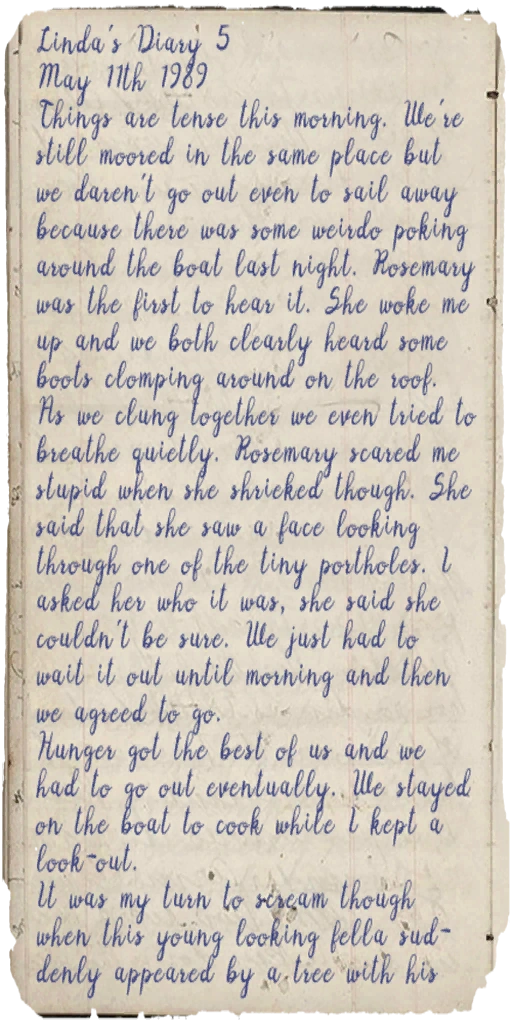 Linda's Diary 5
May 11th 1989
Things are tense this morning. We're
still moored in the same place but
we daren't go out even to sail away
because there was some weirdo poking
around the boat last night. Rosemary
was the first to hear it. She woke me
up and we both clearly heard some
boots clomping around on the roof.
As we clung together we even tried to
breathe quietly. Rosemary scared me
stupid when she shrieked though. She
said that she saw a face looking
through one of the tiny portholes. I
asked her who it was, she said she
couldn't be sure. We just had to
wait it out until morning and then
we agreed to go.
Hunger got the best of us and we
had to go out eventually. We stayed
on the boat to cook while I kept a
look-out.
It was my turn to scream though
when this young looking fella sud-
denly appeared by a tree with his